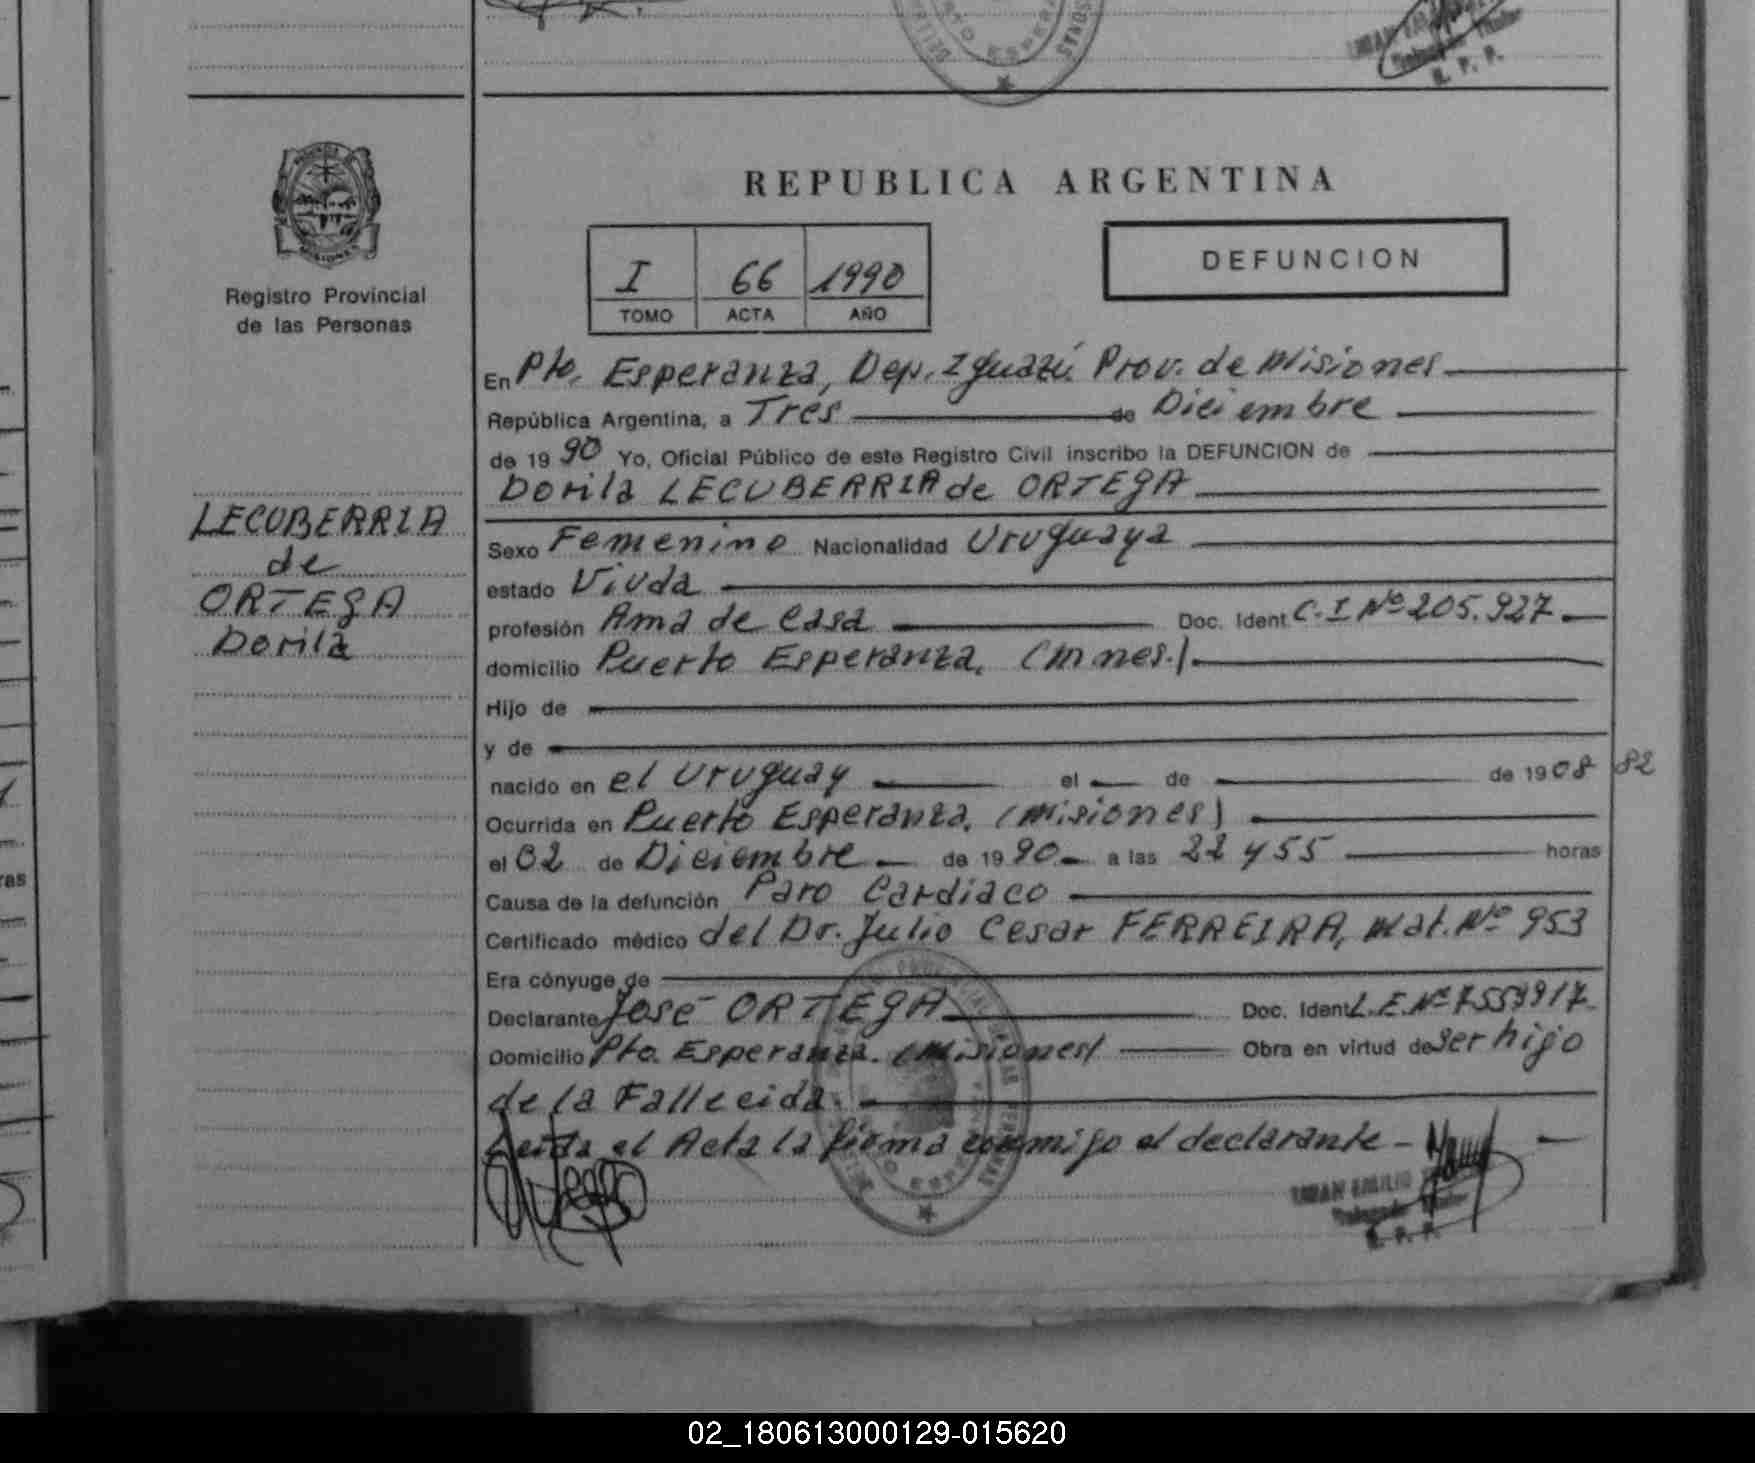 REPUBLICA ARGENTINA
I 66 1990
TOMO ACTA AÑO
DEFUNCION
Registro Provincial
de las Personas
LECUBERRIA
de
ORTEGA
Dorila
En Pto. Esperanza, Dep. Iguazú Prov. de Misiones
República Argentina, a Tres de Diciembre
de 1990 Yo, Oficial Público de este Registro Civil inscribo la DEFUNCION de
Dorila LECUBERRIA de ORTEGA
Sexo Femenino Nacionalidad Uruguaya
estado Viuda
profesión Ama de Casa Doc. Ident C.I Nº 205.927
domicilio Puerto Esperanza, (Mnes.)
Hijo de
y de
nacido en el Uruguay el de de 1908 82
Ocurrida en Puerto Esperanza, (Misiones)
el 02 de Diciembre de 1990 a las 22 y 55 horas
Causa de la defunción Paro Cardiaco
Certificado médico del Dr. Julio Cesar FERREIRA, Mat. Nº 953
Era cónyuge de
Declarante José ORTEGA Doc. Ident L.E. Nº 7559917
Domicilio Pto. Esperanza. (Misiones) Obra en virtud de ser hijo
de la Fallecida.
Leida el Acta la firma conmigo el declarante -
R. P. P.
02_180613000129-015620